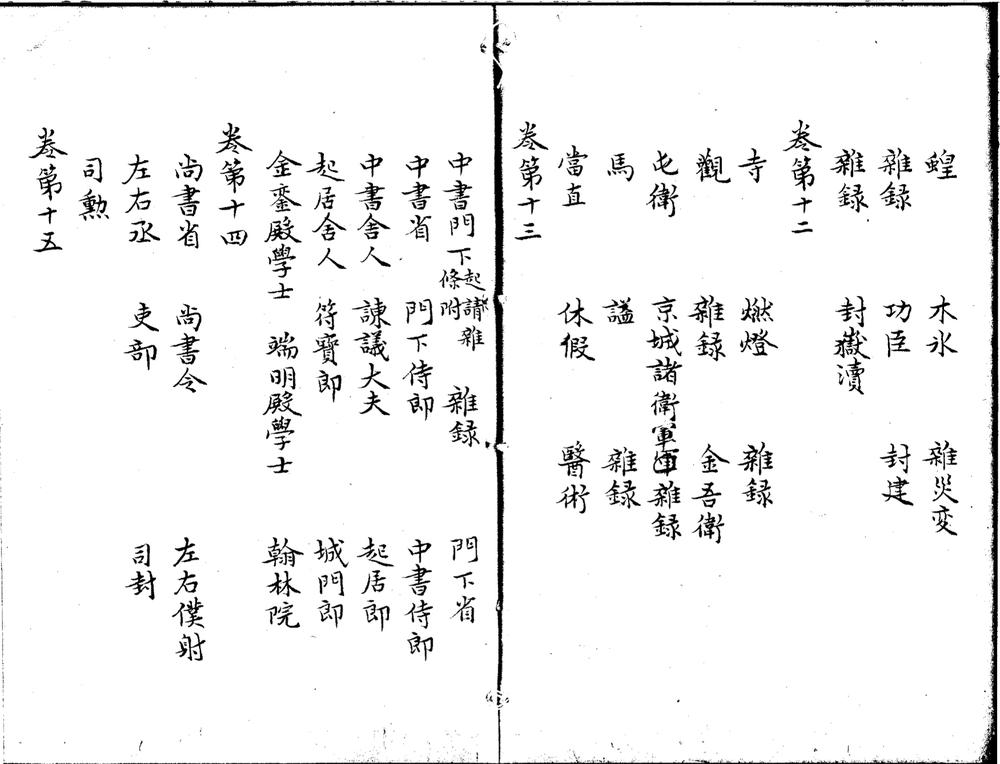 蝗　木氷　雜災变
雜録　功臣　封建
雜録　封嶽瀆
卷第十二
寺　燃燈　雜録
觀　雜録　金吾衛
屯衛　京城諸衛軍雜録
馬　諡　雜録
當直　休假　醫術
卷第十三
中書門下起請雜條附　雜録　門下省
中書省　門下侍郎　中書侍郎
中書舍人　諌議大夫　起居郎
起居舍人　符寶郎　城門郎
金鑾殿學士　端明殿學士　翰林院
卷第十四
尚書省　尚書令　左右僕射
左右丞　吏部　司封
司勳
卷第十五